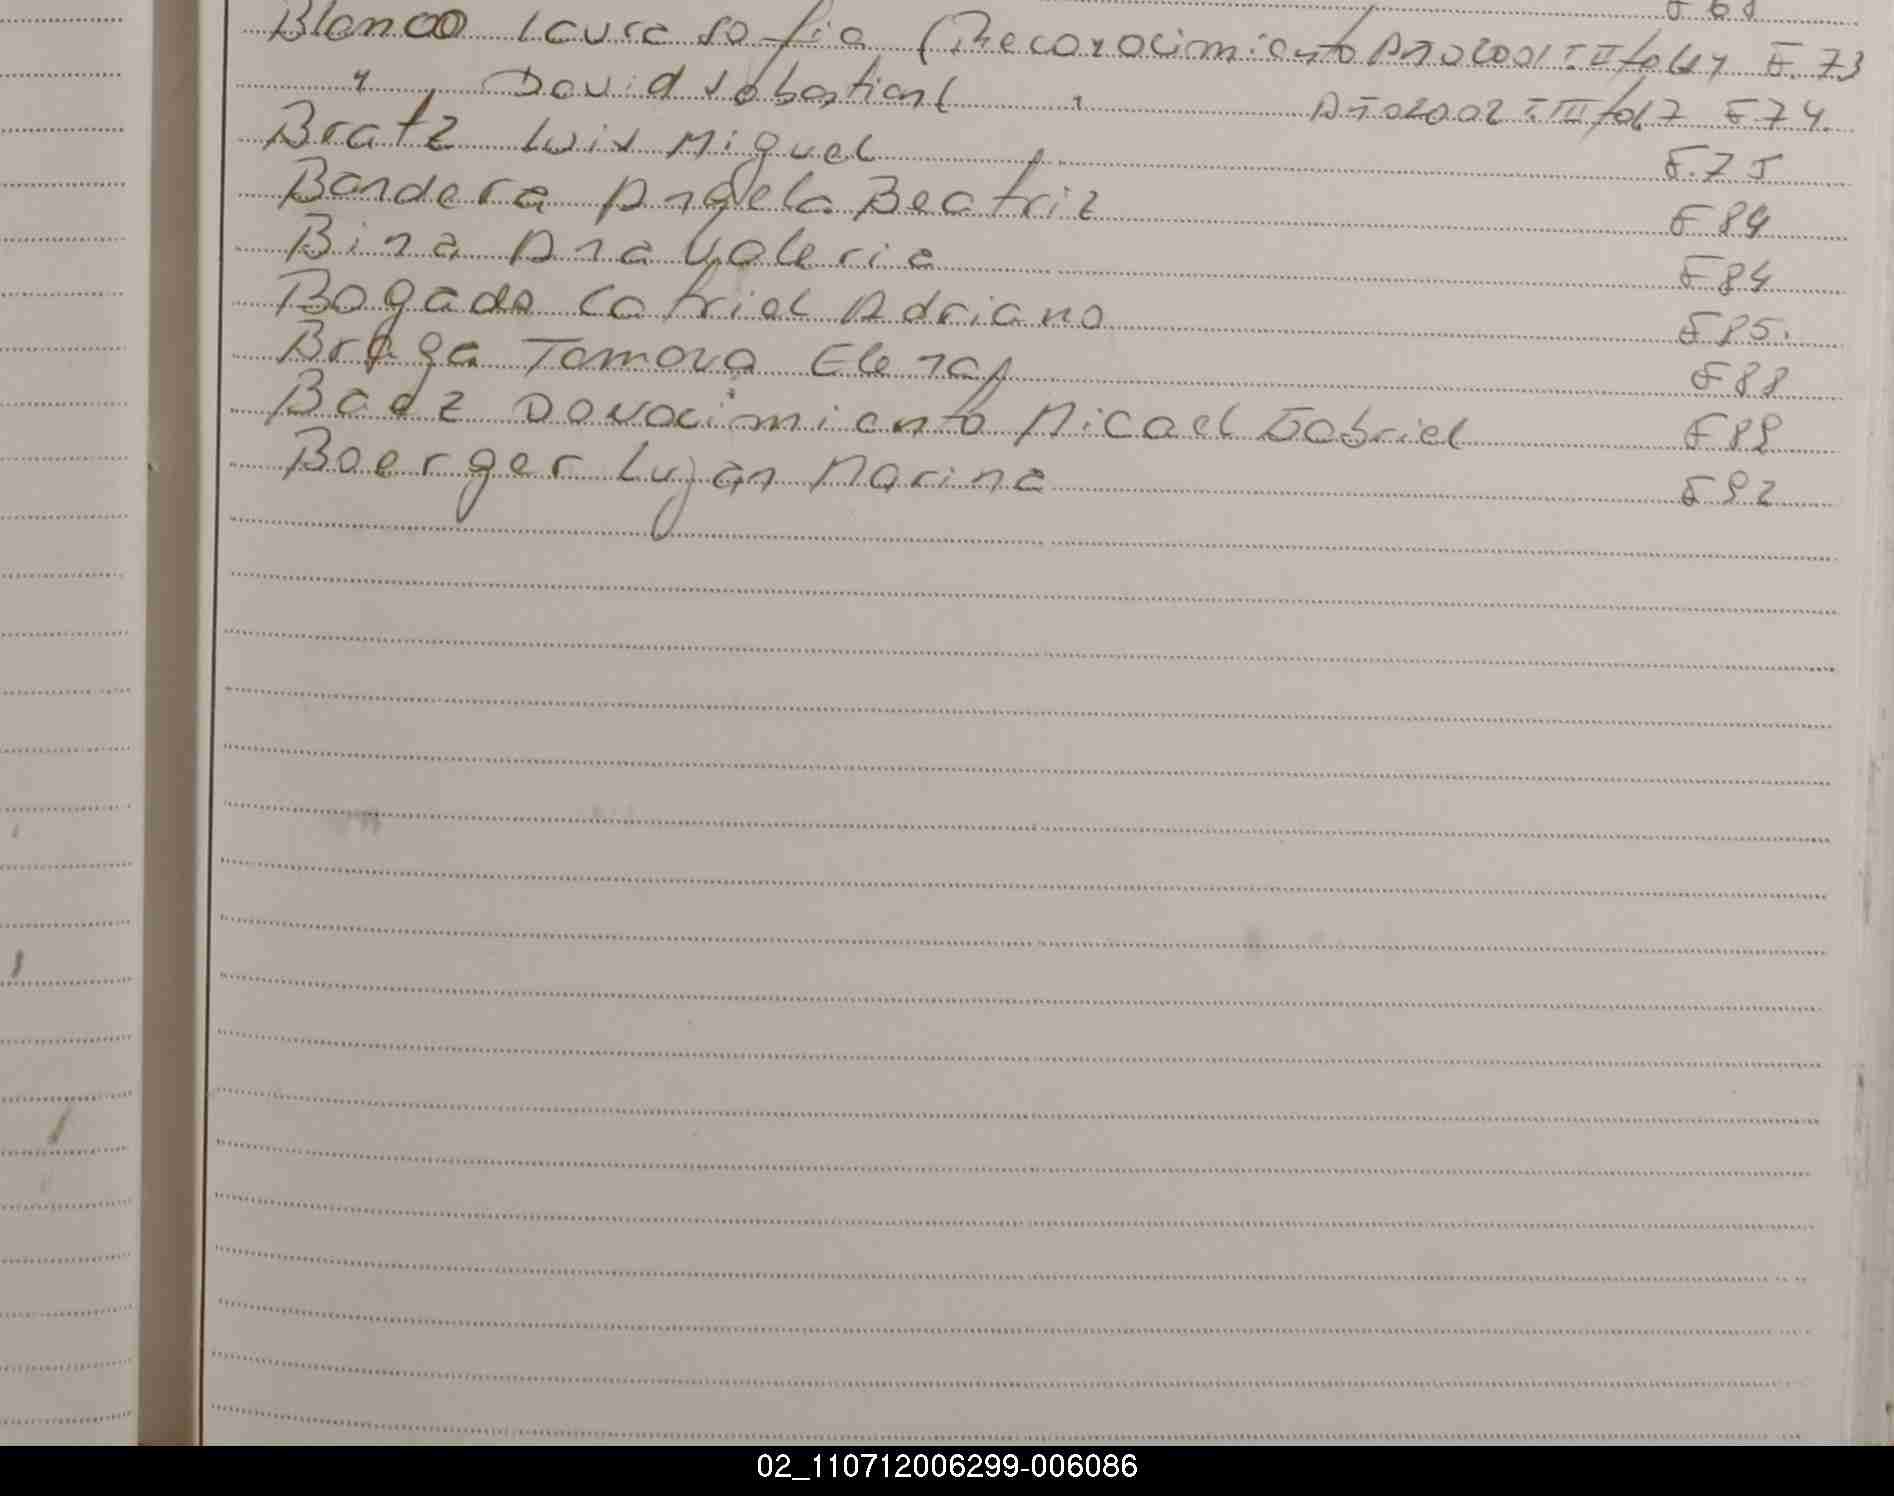 F 68
Blanco Laura Sofia (Reconocimiento Año 2001 T II fol 64 F. 73
" David Sebastian ( " Año 2002 T III fol 7 F 74.
Bratz Luis Miguel F. 75
Bandera Angela Beatriz F 84
Bina Ana Valeria F 84
Bogado Catriel Adriano F 85.
Braga Tamara Elena F 88
Baez Donocimiento Micael Gabriel F 89
Boerger Lujan Marina F 92
02_110712006299-006086